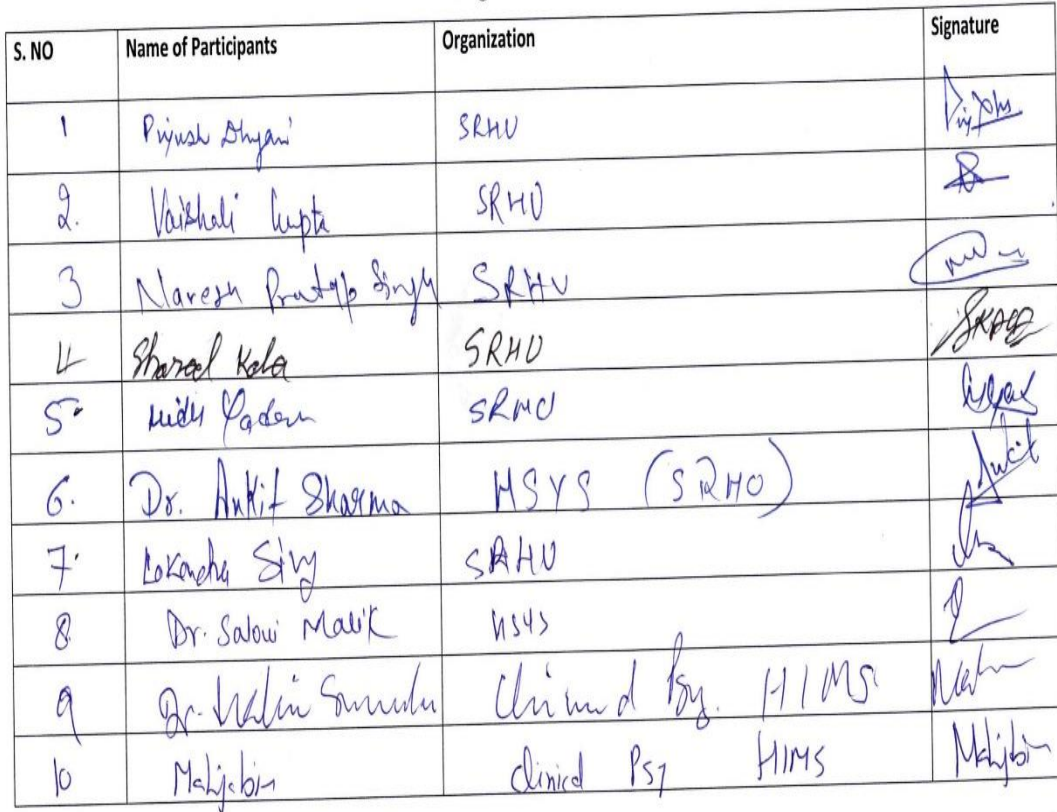 S. NO Name of Participants Organization Signature
1 Piyush Dhyani SRHU
2. Vaishali Gupta SRHU
3 Naresh Pratap Singh SRHU
4 Sharad Kala SRHU
5. Yadav SRHU
6. Dr. Ankit Sharma HSYS (SRHU) Ankit
7. SRHU
8 Dr. Malik HSYS
9 Dr. Clinical Psy. HIMS
10 Mahjabin Clinical Psy HIMS Mahjabin